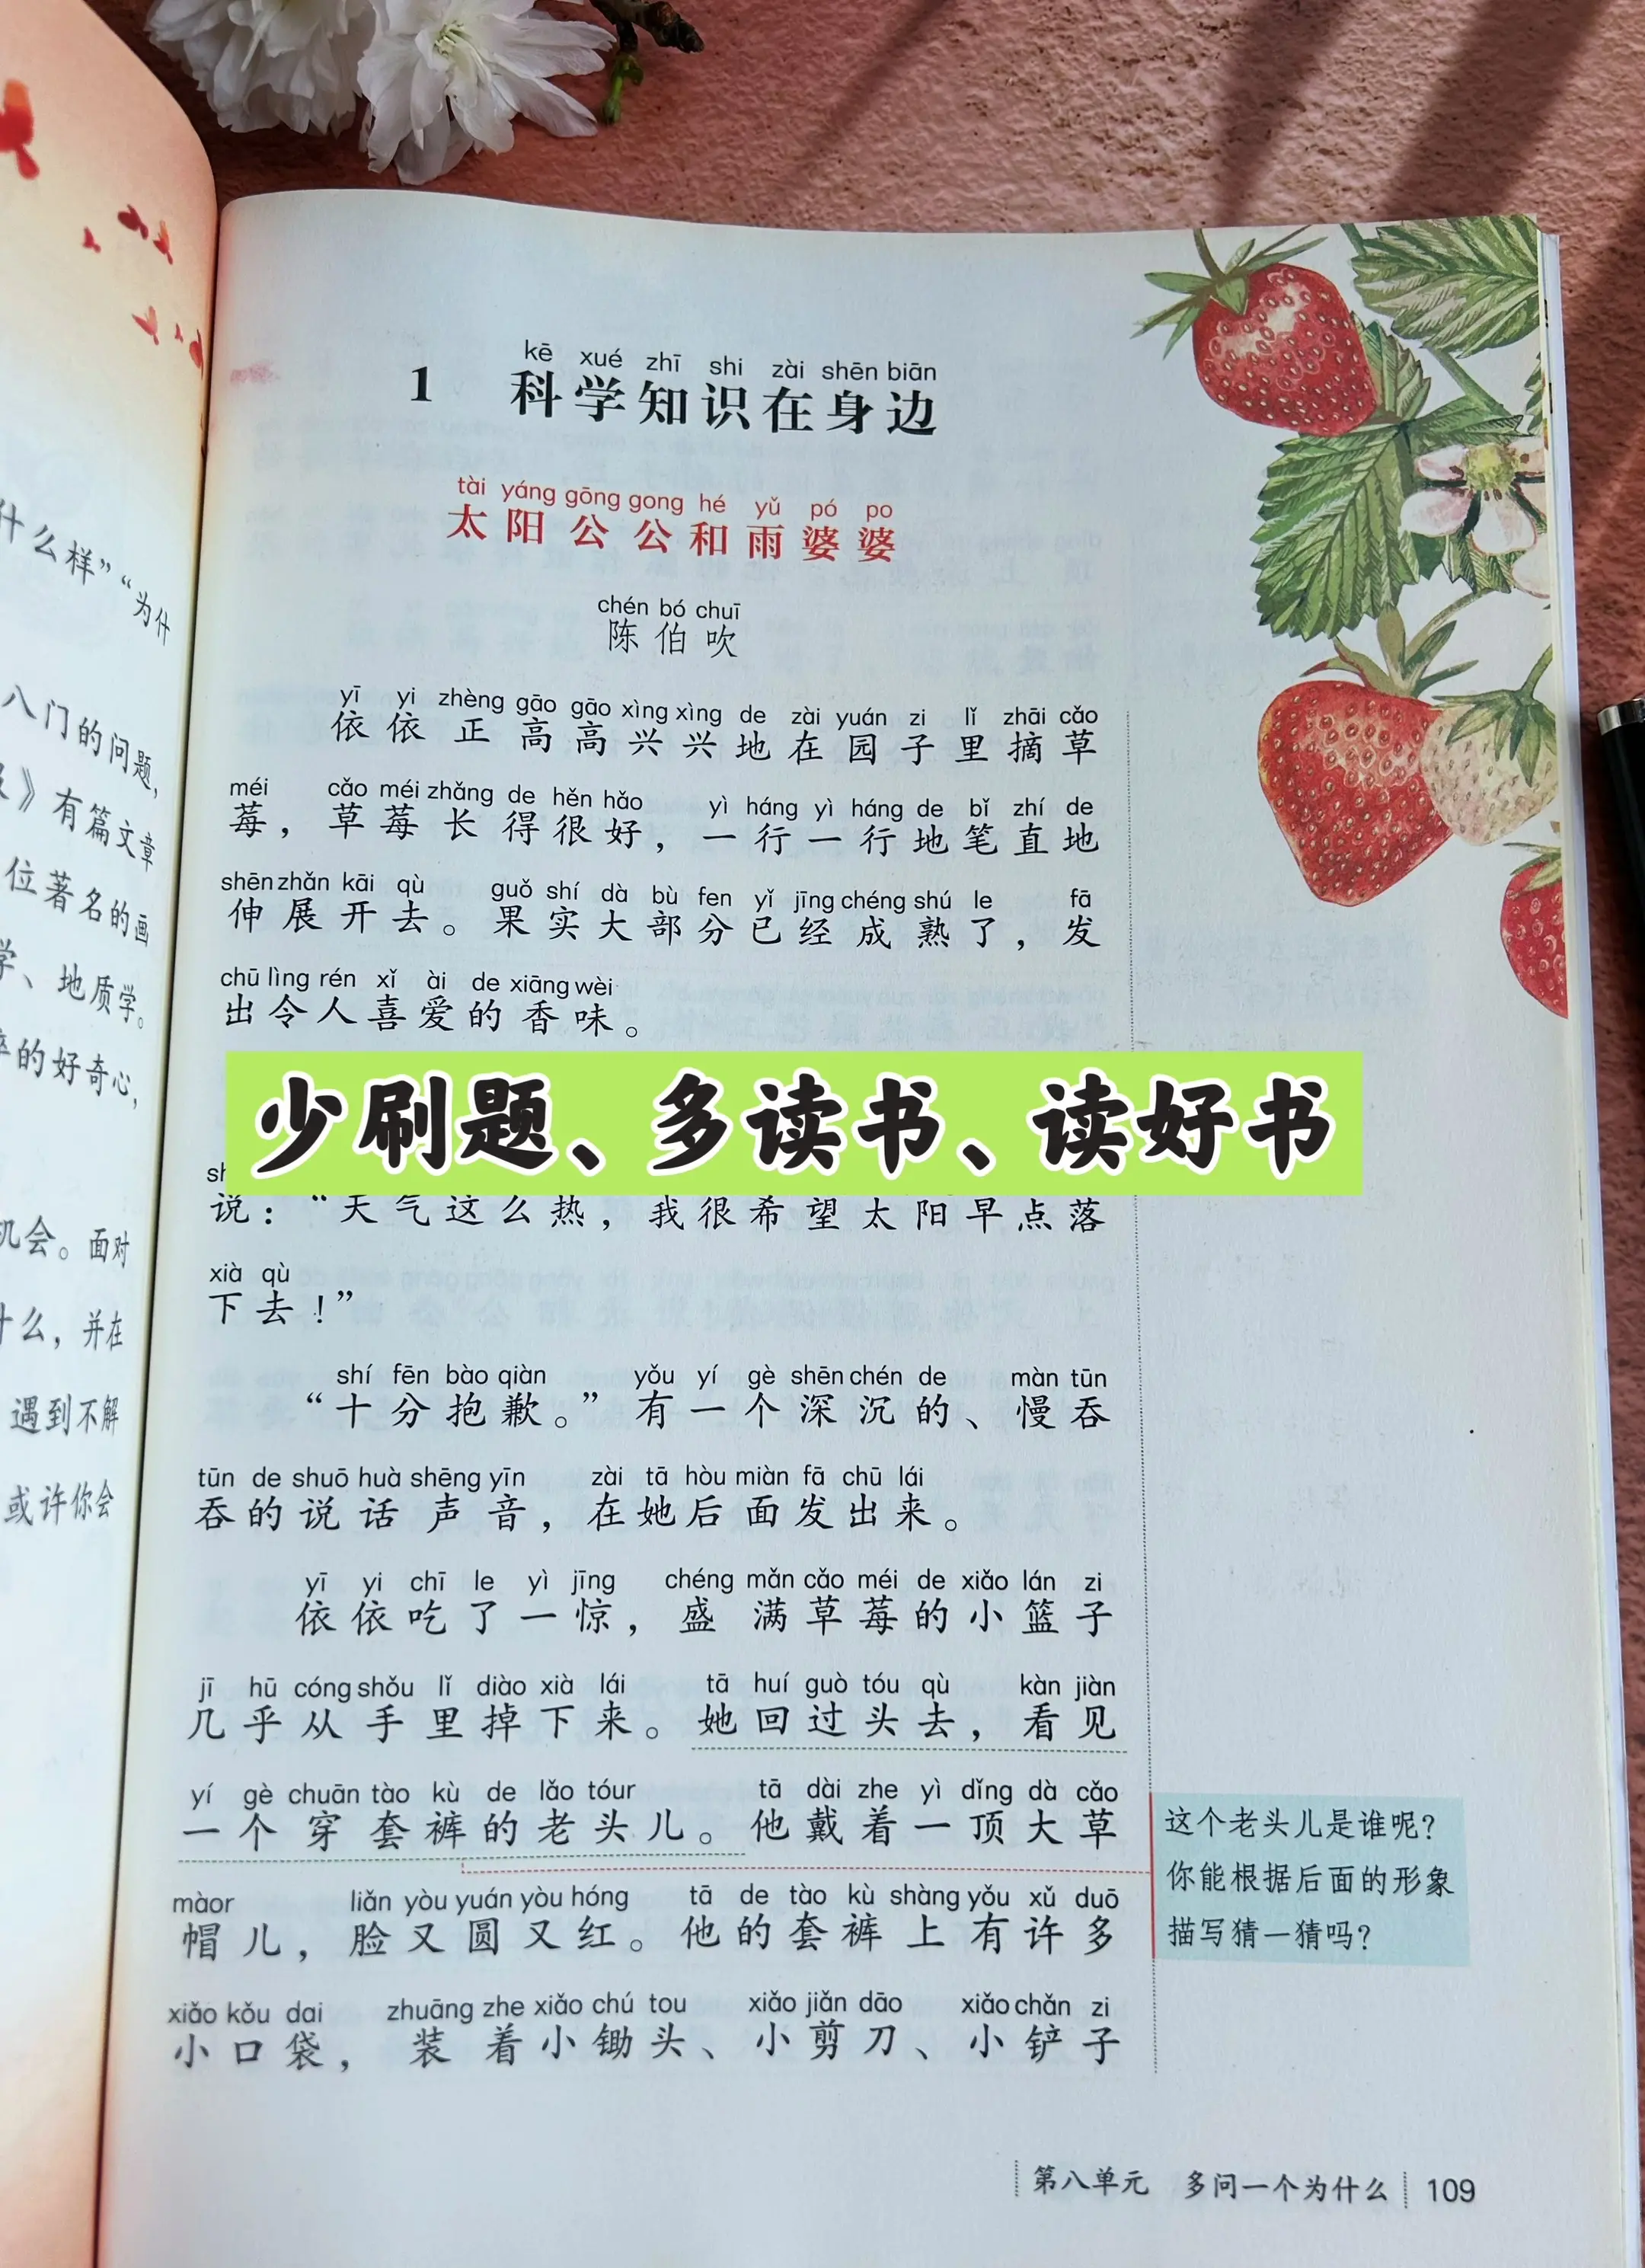 什么样”“为什
八门的问题，
》有篇文章
位著名的画
学、地质学。
的好奇心，
机会。面对
什么，并在
遇到不解
或许你会
kē xué zhī shi zài shēn biān
1 科学知识在身边
tài yáng gōng gong hé yǔ pó po
太阳公公和雨婆婆
chén bó chuī
陈伯吹
yī yi zhèng gāo gāo xìng xìng de zài yuán zi lǐ zhāi cǎo
依依正高高兴兴地在园子里摘草
méi cǎo méi zhǎng de hěn hǎo yì háng yì háng de bǐ zhí de
莓，草莓长得很好，一行一行地笔直地
shēn zhǎn kāi qù guǒ shí dà bù fen yǐ jīng chéng shú le fā
伸展开去。果实大部分已经成熟了，发
chū lìng rén xǐ ài de xiāng wèi
出令人喜爱的香味。
少刷题、多读书、读好书
说：“天气这么热，我很希望太阳早点落
xià qù
下去！”
shí fēn bào qiàn yǒu yí gè shēn chén de màn tūn
“十分抱歉。”有一个深沉的、慢吞
tūn de shuō huà shēng yīn zài tā hòu miàn fā chū lái
吞的说话声音，在她后面发出来。
yī yi chī le yì jīng chéng mǎn cǎo méi de xiǎo lán zi
依依吃了一惊，盛满草莓的小篮子
jī hū cóng shǒu lǐ diào xià lái tā huí guò tóu qù kàn jiàn
几乎从手里掉下来。她回过头去，看见
yí gè chuān tào kù de lǎo tóur tā dài zhe yì dǐng dà cǎo
一个穿套裤的老头儿。他戴着一顶大草
màor liǎn yòu yuán yòu hóng tā de tào kù shàng yǒu xǔ duō
帽儿，脸又圆又红。他的套裤上有许多
xiǎo kǒu dai zhuāng zhe xiǎo chú tou xiǎo jiǎn dāo xiǎo chǎn zi
小口袋，装着小锄头、小剪刀、小铲子
这个老头儿是谁呢？
你能根据后面的形象
描写猜一猜吗？
第八单元 多问一个为什么 109